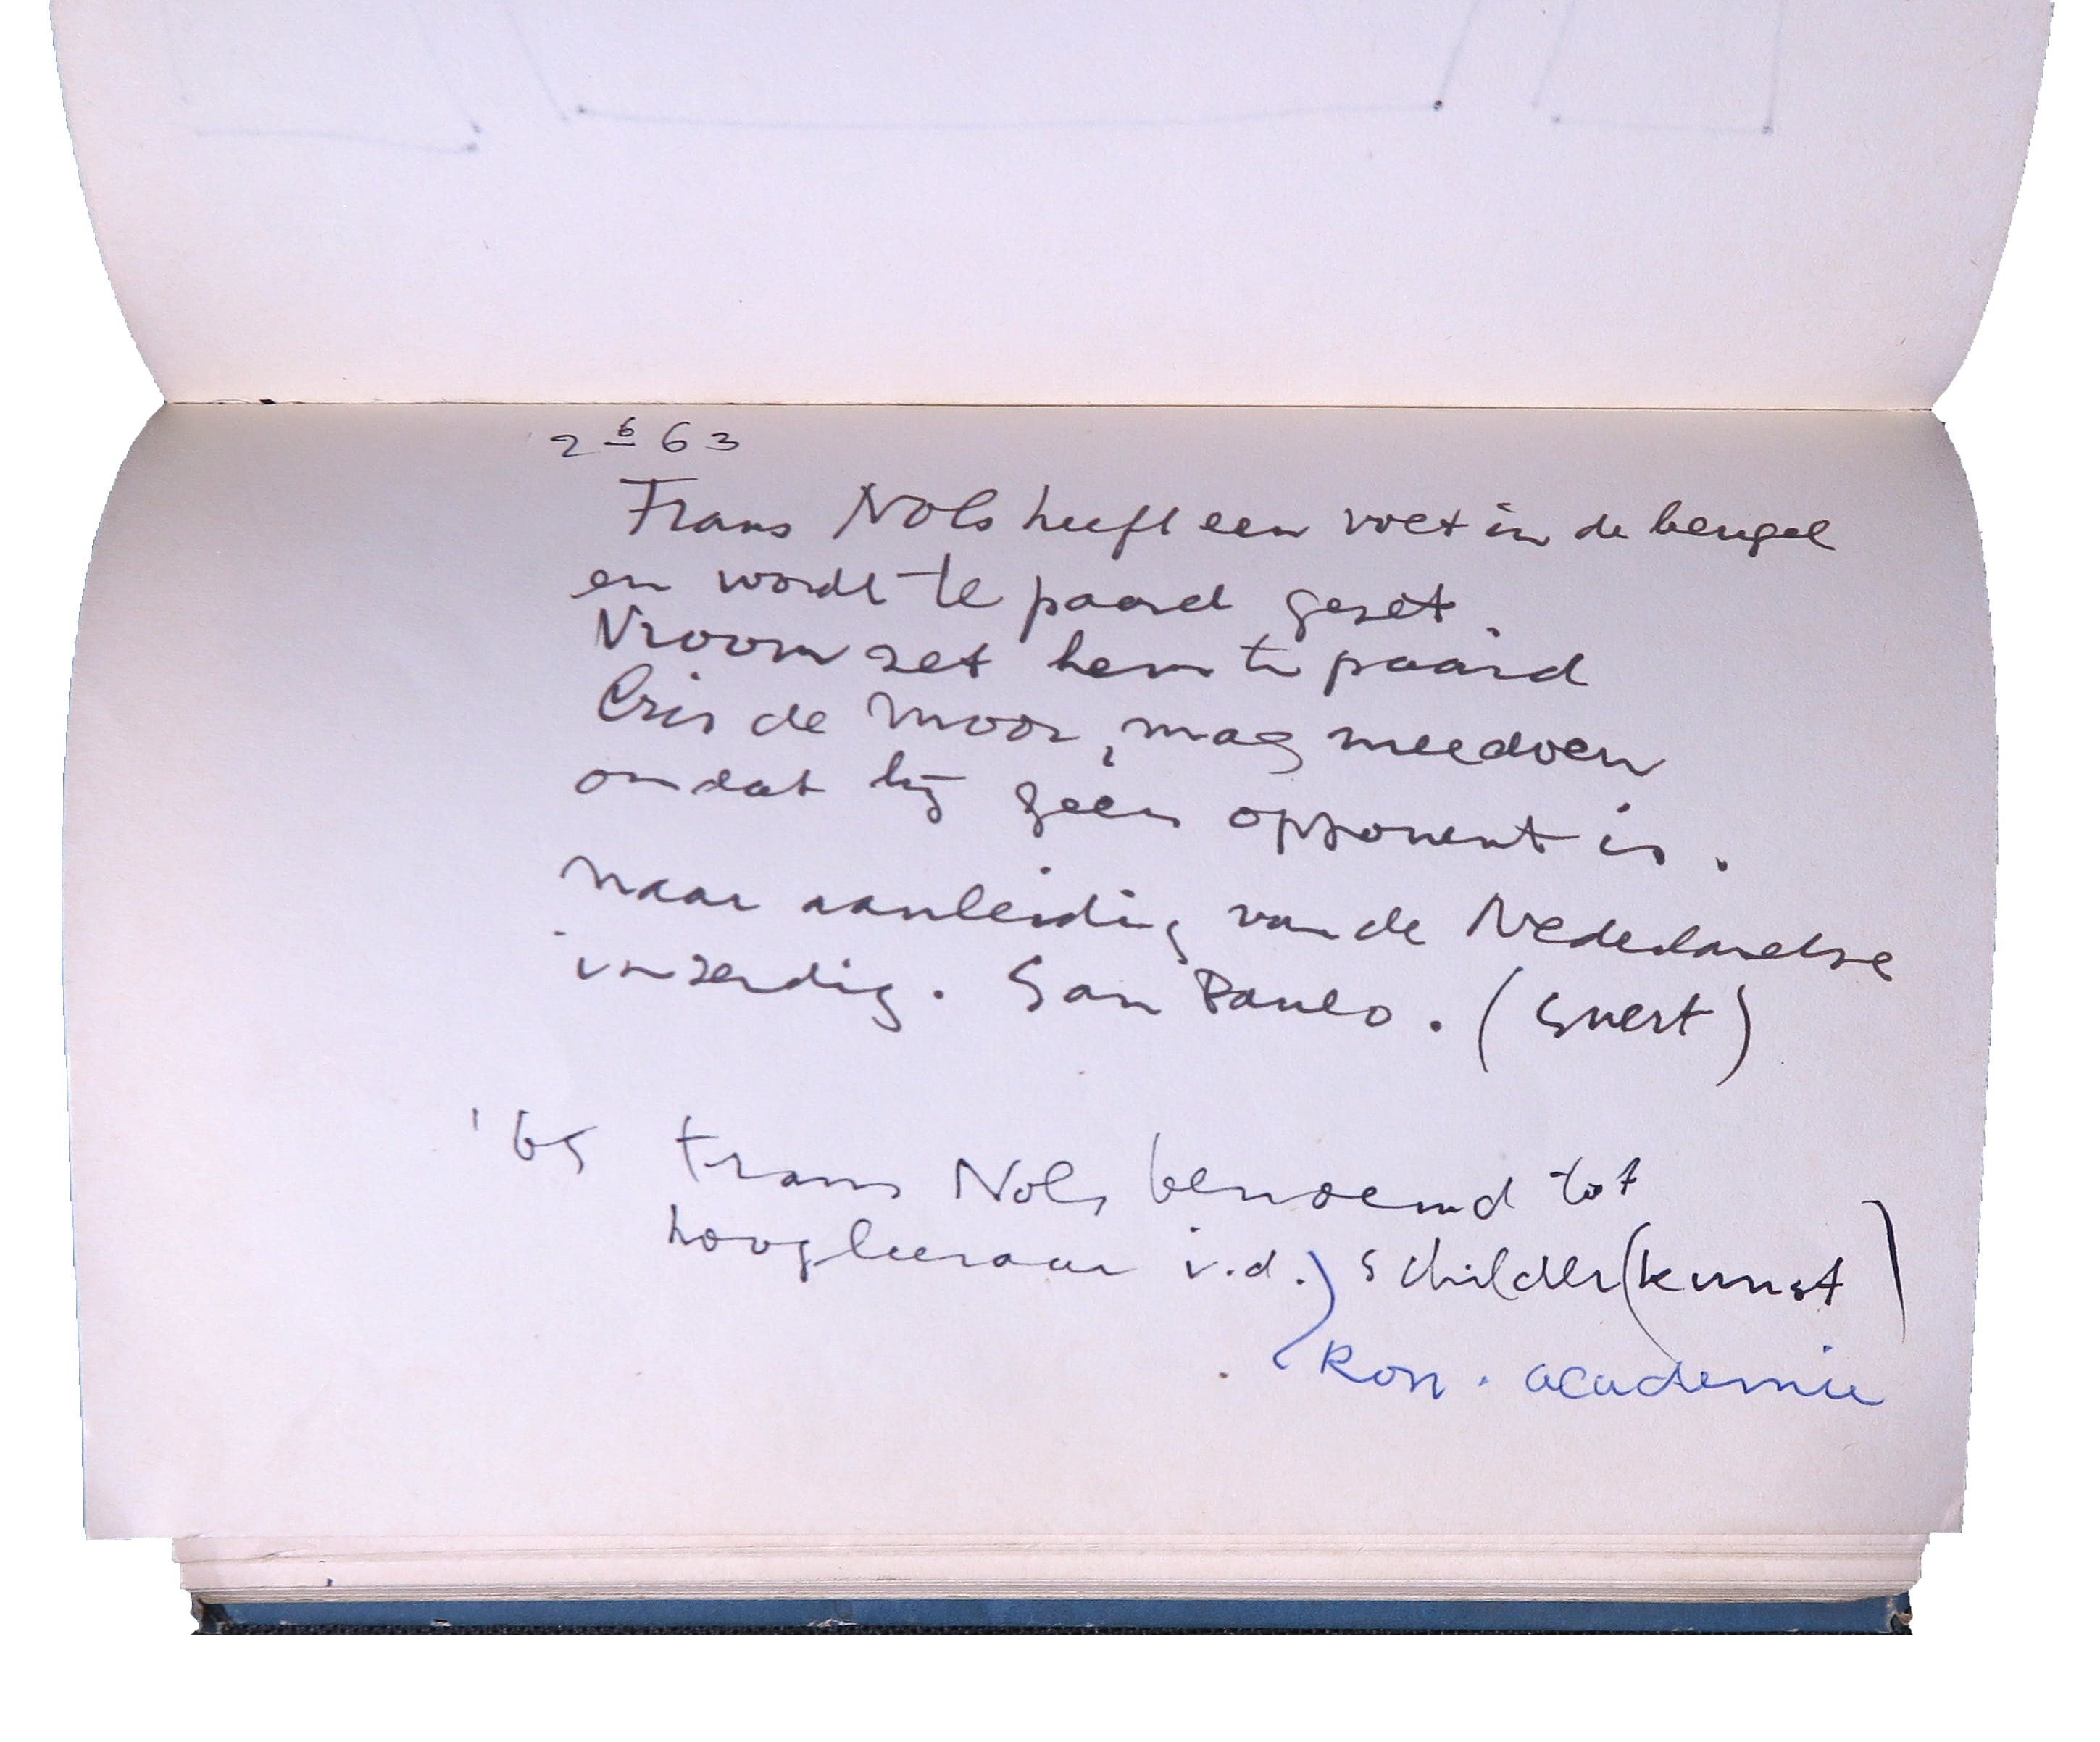 2 6 63
Frans Nols heeft een voet in de beugel
en wordt te paard gezet.
Vroom zet hem te paard
Cris de Moor, mag meedoen
omdat hij geen opponent is.
naar aanleiding van de Nederlandse
inzending. San Paulo. (
'65 Frans Nols benoemd tot
hoogleraar i.d.) schilder(kunst)
(Kon. academie